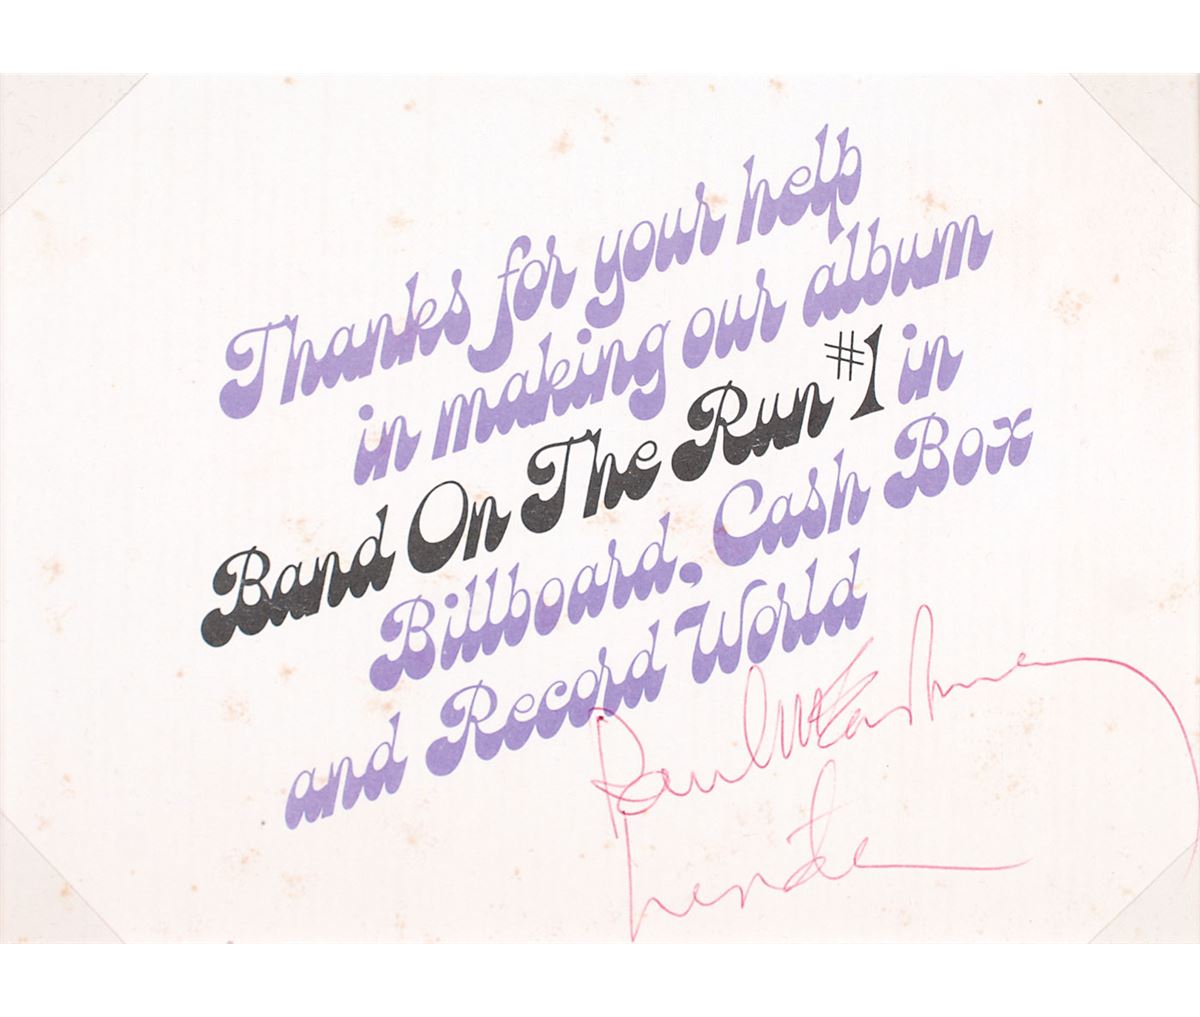 Thanks for your help
in making our album
Band On The Run #1 in
Billboard, Cash Box
and Record World
Paul McCartney
Linda